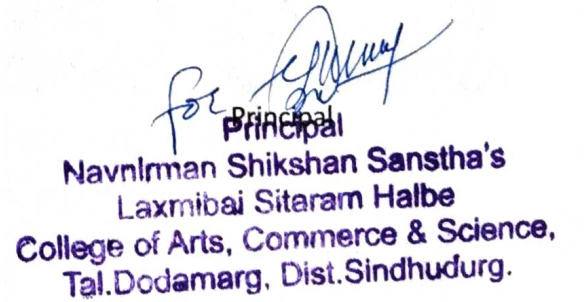 for
Principal
Principal
NavnIrman Shikshan Sanstha's
Laxmibai Sitaram Halbe
College of Arts, Commerce & Science,
Tal.Dodamarg, Dist.Sindhudurg.